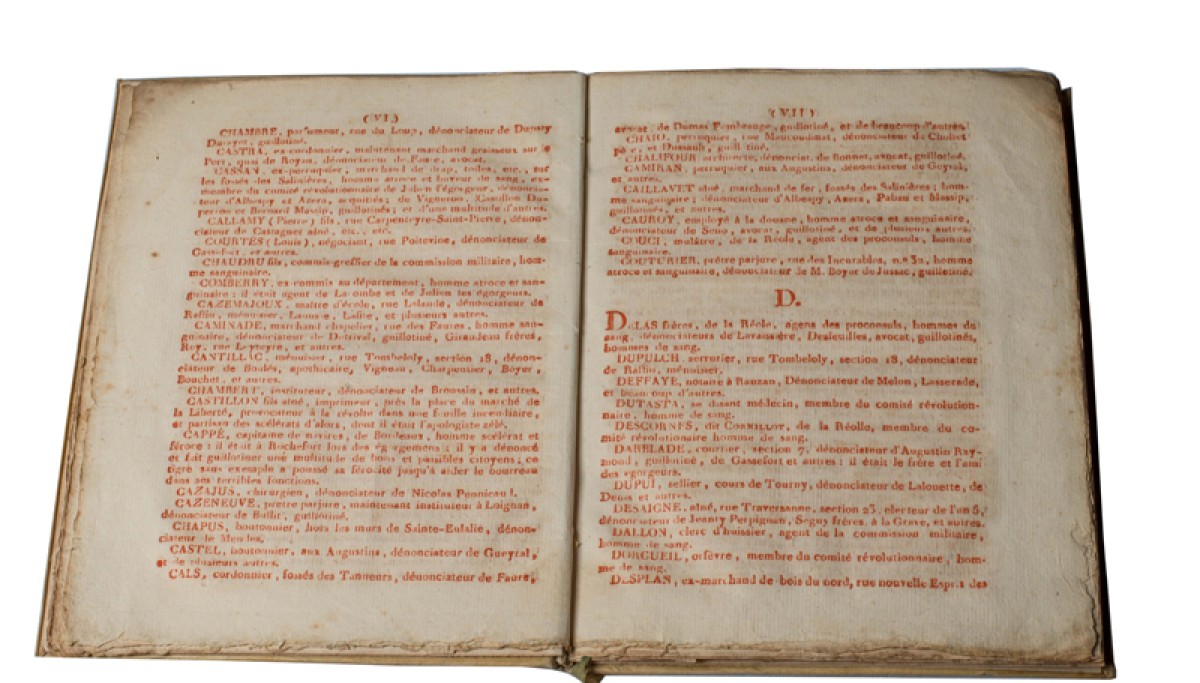 (VI)
CHAMBRE, parfumeur, rue du Loup, dénonciateur de Duputy
guillotiné.
CASTRA, ex-cordonnier, maintenant marchand graisseux sur le
Port, quai de Royan, dénonciateur de Faure, avocat.
CASSAN, ex-perruquier, marchand de drap, toiles, etc., sur
les fossés des Salinières, homme atroce et buveur de sang, ex-
membre du comité révolutionnaire de Julien l'égorgeur, dénoncia-
teur d'Albespy et Azera, acquittés; de Vigneron,
et Bernard Massip, guillotinés; et d'une multitude d'autres.
CALLAMY (Pierre) fils, rue Carpenteyre-Saint-Pierre, dénon-
ciateur de Castagnet aîné, etc., etc.
COURTES (Louis), négociant, rue Poitevine, dénonciateur de
Gassefort, et autres.
CHAUDRU fils, commis-greffier de la commission militaire, hom-
me sanguinaire.
COMBERRY, ex-commis au département, homme atroce et san-
guinaire : il était agent de Lacombe et de Julien les égorgeurs.
CAZEMAJOUX, maître d'école, rue Lalande, dénonciateur de
Raffin, menuisier, Lafite, et plusieurs autres.
CAMINADE, marchand chapelier, rue des Faures, homme san-
guinaire, dénonciateur de Dorival, guillotiné, Giraudeau frères,
Roy, rue et autres.
CANTILLAC, menuisier, rue Tombeloly, section 18, dénon-
ciateur de Boulés, apothicaire, Vigneau, Charpentier, Boyer,
Bouchet, et autres.
CHAMBERT, instituteur, dénonciateur de Broussin, et autres.
CASTILLON fils aîné, imprimeur, près la place du marché de
la Liberté, provocateur à la révolte dans une feuille incendiaire,
et partisan des scélérats d'alors, dont il était l'apologiste zélé.
CAPPÉ, capitaine de navires, de Bordeaux, homme scélérat et
féroce : il était à Rochefort lors des égorgemens : il y a dénoncé
et fait guillotiner une multitude de bons et paisibles citoyens; ce
tigre sans exemple a poussé sa férocité jusqu'à aider le bourreau
dans ses terribles fonctions.
CAZAJUS, chirurgien, dénonciateur de Nicolas
CAZENEUVE, prêtre parjure, maintenant instituteur à Loignan,
dénonciateur de guillotiné.
CHAPUS, boutonnier, hors les murs de Sainte-Eulalie, dénon-
ciateur de Mendes.
CASTEL, boutonnier, aux Augustins, dénonciateur de Gueyral,
et de plusieurs autres.
CALS, cordonnier, fossés des Tanneurs, dénonciateur de Faure,
(VII)
avocat, de Dumas guillotiné, et de beaucoup d'autres.
CHAIO, perruquier, rue Maucoudinat, dénonciateur de Cholet
père, et Dussault, guillotiné.
CHALIFOUR architecte, dénonciat. de Bonnet, avocat, guillotiné.
CAMIRAN, perruquier, aux Augustins, dénonciateur de Geyral,
et autres.
CAILLAVET aîné, marchand de fer, fossés des Salinières; hom-
me sanguinaire; dénonciateur d'Albespy, Azera, Palau et Massip,
guillotinés, et autres.
CAUROY, employé à la douane, homme atroce et sanguinaire,
dénonciateur de avocat, guillotiné, et de plusieurs autres.
COUCI, mulâtre, de la Réole, agent des proconsuls, homme
sanguinaire.
COUTURIER, prêtre parjure, rue des Incurables, n.° 32, homme
atroce et sanguinaire, dénonciateur de M. Boyer de Jussac, guillotiné.
D.
DALAS frères, de la Réole, agens des proconsuls, hommes de
sang, dénonciateurs de Lavaissière, Desfeuilles, avocat, guillotinés,
hommes de sang.
DUPULCH, serrurier, rue Tombeloly, section 18, dénonciateur
de Raffin, menuisier.
DEFFAYE, notaire à Rauzan, Dénonciateur de Melon, Lasserade,
et beaucoup d'autres.
DUTASTA, se disant médecin, membre du comité révolution-
naire, homme de sang.
DESCORNES, dit CORNILLOT, de la Réolle, membre du co-
mité révolutionnaire homme de sang.
DARBLADE, courtier, section 7, dénonciateur d'Augustin Ray-
mond, guillotiné, de Gassefort et autres : il était le frère et l'ami
des égorgeurs.
DUPUI, sellier, cours de Tourny, dénonciateur de Lalouette, de
Denis et autres.
DESAIGNE, aîné, rue Traversanne, section 23, électeur de l'an 5,
dénonciateur de Jeanty Perpignan, Seguy frères, à la Grave, et autres.
DALLON, clerc d'huissier, agent de la commission militaire,
homme de sang.
DORGUEIL, orfèvre, membre du comité révolutionnaire, hom-
me de sang.
DESPLAN, ex-marchand de bois du nord, rue nouvelle Esprit des